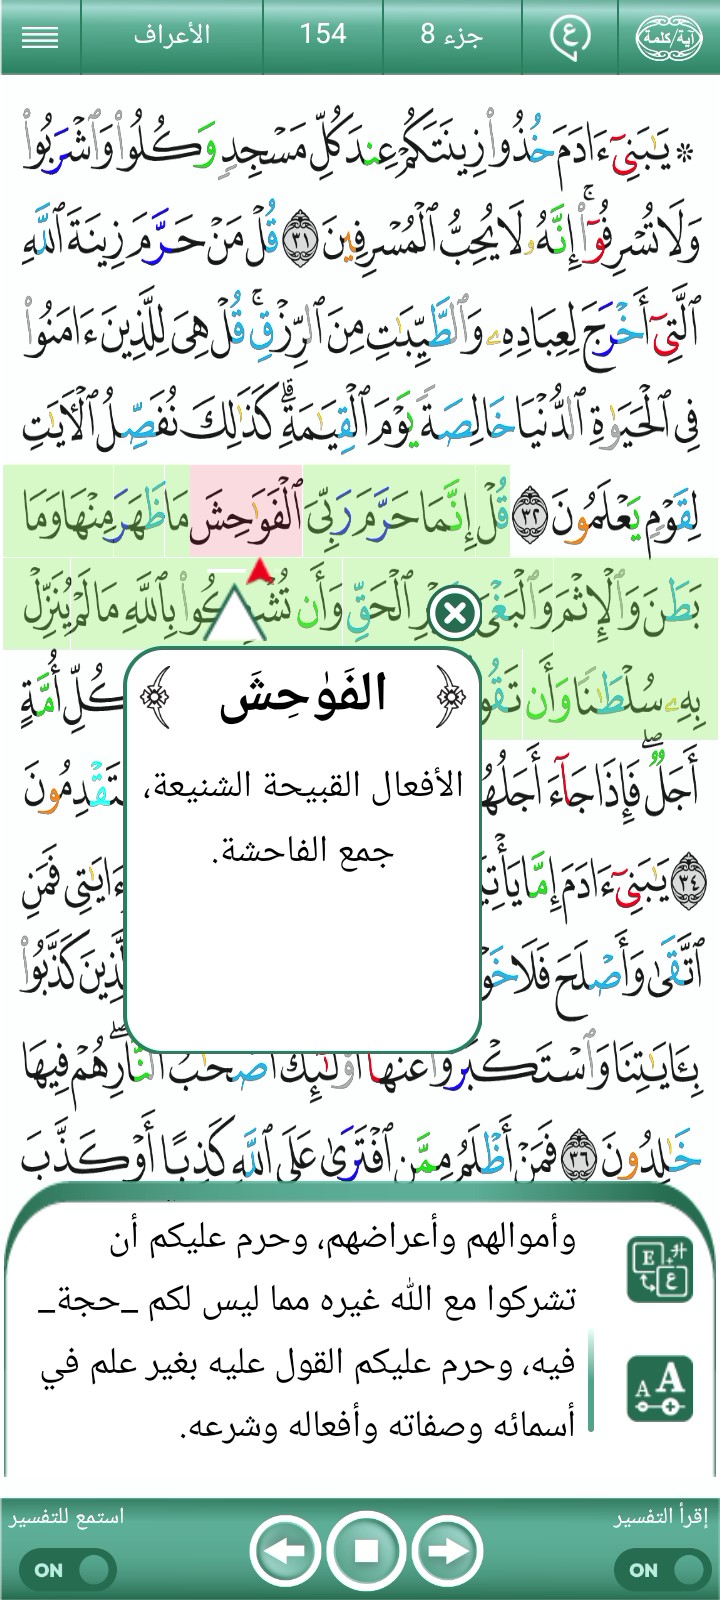 آية/كلمة
ع
جزء 8
154
الأعراف
۞ يَٰبَنِىٓ ءَادَمَ خُذُوا۟ زِينَتَكُمْ عِندَ كُلِّ مَسْجِدٍ وَكُلُوا۟ وَٱشْرَبُوا۟
وَلَا تُسْرِفُوٓا۟ ۚ إِنَّهُۥ لَا يُحِبُّ ٱلْمُسْرِفِينَ ٣١ قُلْ مَنْ حَرَّمَ زِينَةَ ٱللَّهِ
ٱلَّتِىٓ أَخْرَجَ لِعِبَادِهِۦ وَٱلطَّيِّبَٰتِ مِنَ ٱلرِّزْقِ ۚ قُلْ هِىَ لِلَّذِينَ ءَامَنُوا۟
فِى ٱلْحَيَوٰةِ ٱلدُّنْيَا خَالِصَةً يَوْمَ ٱلْقِيَٰمَةِ ۗ كَذَٰلِكَ نُفَصِّلُ ٱلْءَايَٰتِ
لِقَوْمٍ يَعْلَمُونَ ٣٢ قُلْ إِنَّمَا حَرَّمَ رَبِّىَ ٱلْفَوَٰحِشَ مَا ظَهَرَ مِنْهَا وَمَا
بَطَنَ وَٱلْإِثْمَ وَٱلْبَغْىَ ٱلْحَقِّ وَأَن بِٱللَّهِ مَا لَمْ يُنَزِّلْ
بِهِۦ سُلْطَٰنًا وَأَن كُلِّ أُمَّةٍ
أَجَلٌ ۖ فَإِذَا جَآءَ
٣٤ يَٰبَنِىٓ ءَادَمَ إِمَّا ءَايَٰتِى فَمَنِ
ٱتَّقَىٰ وَأَصْلَحَ فَلَا كَذَّبُوا۟
بِـَٔايَٰتِنَا وَٱسْتَكْبَرُوا۟ عَنْهَآ أُو۟لَٰٓئِكَ أَصْحَٰبُ ٱلنَّارِ ۖ هُمْ فِيهَا
خَٰلِدُونَ ٣٦ فَمَنْ أَظْلَمُ مِمَّنِ ٱفْتَرَىٰ عَلَى ٱللَّهِ كَذِبًا أَوْ كَذَّبَ
الفَوَٰحِشَ
الأفعال القبيحة الشنيعة،
جمع الفاحشة.
وأموالهم وأعراضهم، وحرم عليكم أن
تشركوا مع الله غيره مما ليس لكم _حجة_
فيه، وحرم عليكم القول عليه بغير علم في
أسمائه وصفاته وأفعاله وشرعه.
E ع
A A
إقرأ التفسير
ON
استمع للتفسير
ON